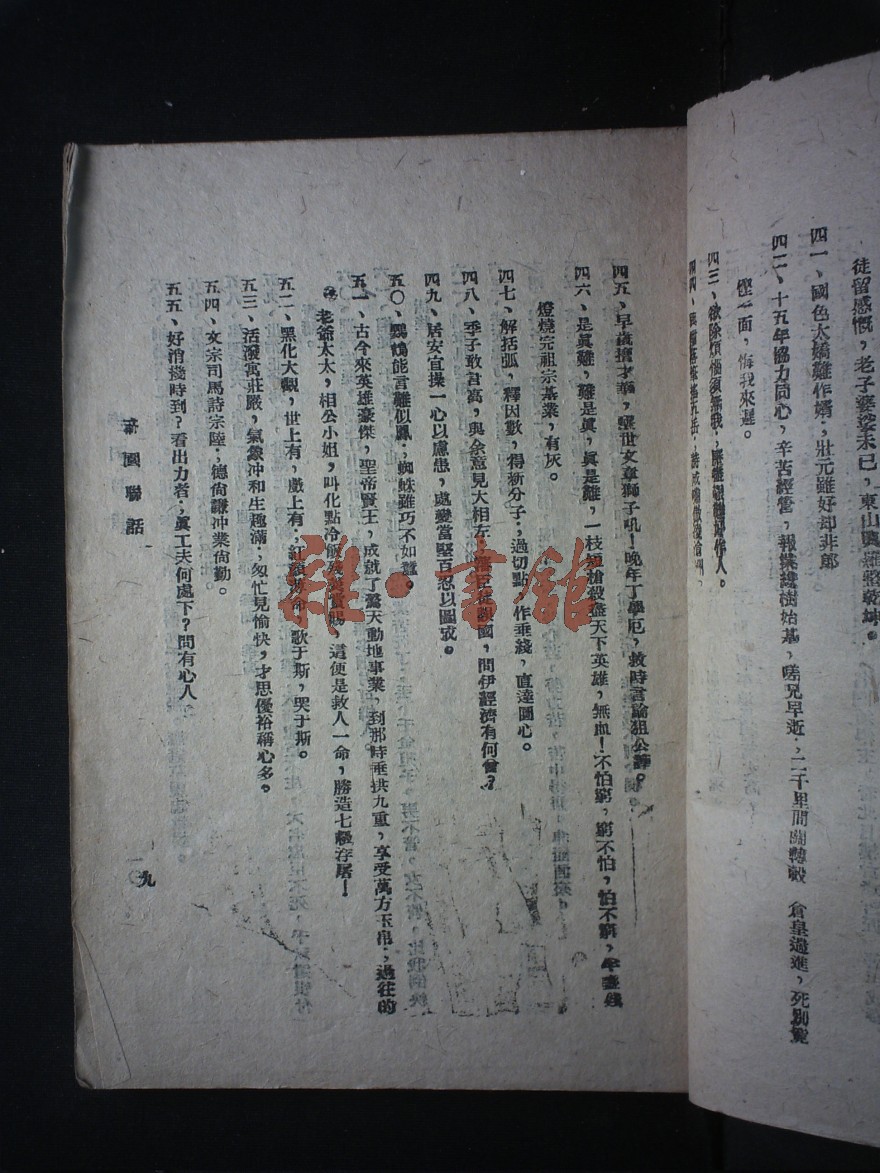 徒留感慨，老子婆娑未已，東山興
四一、國色太嬌難作婿；壯元雖好却非郎
四二、十五年協力同心，辛苦經管，報 樹始基，嗟兄早逝；二千里間關轉轂 倉皇遄進，死別
慳一面，悔我來遲。
四三、欲除煩惱須無我；歷 好作人。
四四、
四五、早歲擅才華，驚世文章獅子吼！晚年丁學厄，救時言論狙公 。
四六、是眞難，難是眞，眞是難，一枝 槍殺盡天下英雄，無血！不怕窮，窮不怕，怕不窮，半盞殘
燈燒完祖宗基業，有灰。
四七、解括弧，釋因數，得新分子；過切點，作垂綫，直達圓心。
四八、季子敢言高，與余意見大相左；藩臣徒 國，問伊經濟有何曾？
四九、居安宜操一心以慮患，處變當堅百忍以圖成。
五〇、鸚鵡能言難似鳳；蜘蛛雖巧不如蠶。
五一、古今來英雄豪傑，聖帝賢王，成就了驚天動地事業，到那時垂拱九重，享受萬方玉帛；過往的
老爺太太，相公小姐，叫化點冷飯殘 賞賜，這便是救人一命，勝造七級浮屠！
五二、黑化大觀，世上有，戲上有；紅顏薄命，歌于斯，哭于斯。
五三、活潑寓莊嚴，氣象冲和生趣滿；匆忙見愉快，才思優裕稱心多。
五四、文宗司馬詩宗陸；德尙謙冲業尙勤。
五五、好消幾時到？看出力者；眞工夫何處下？問有心人
園聯話
九
雜·書館